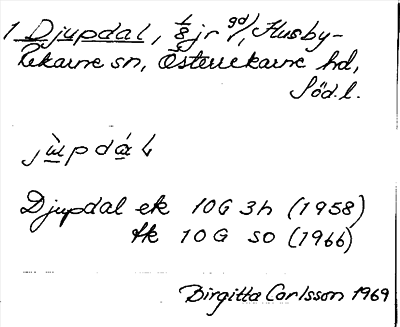 1 Djupdal, 1/8 jr gd/, Husby-
Rekarne sn, Österrekarne hd,
Söd.l.
Djupdal ek 10G 3h (1958)
tk 10G SO (1966)
Birgitta Carlsson 1969